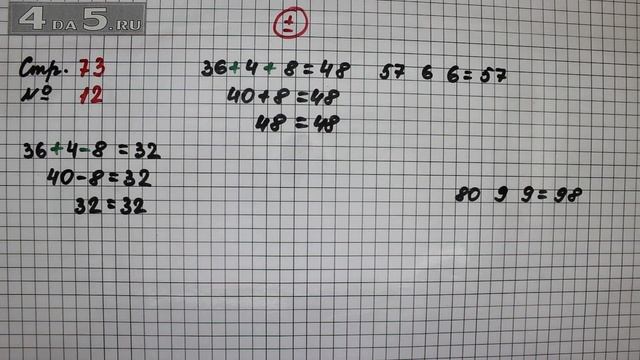 4 DA 5.RU
±
Стр. 73
№ 12
36+4-8=32
40-8=32
32=32
36+4+8=48
40+8=48
48=48
57 6 6=57
80 9 9=98